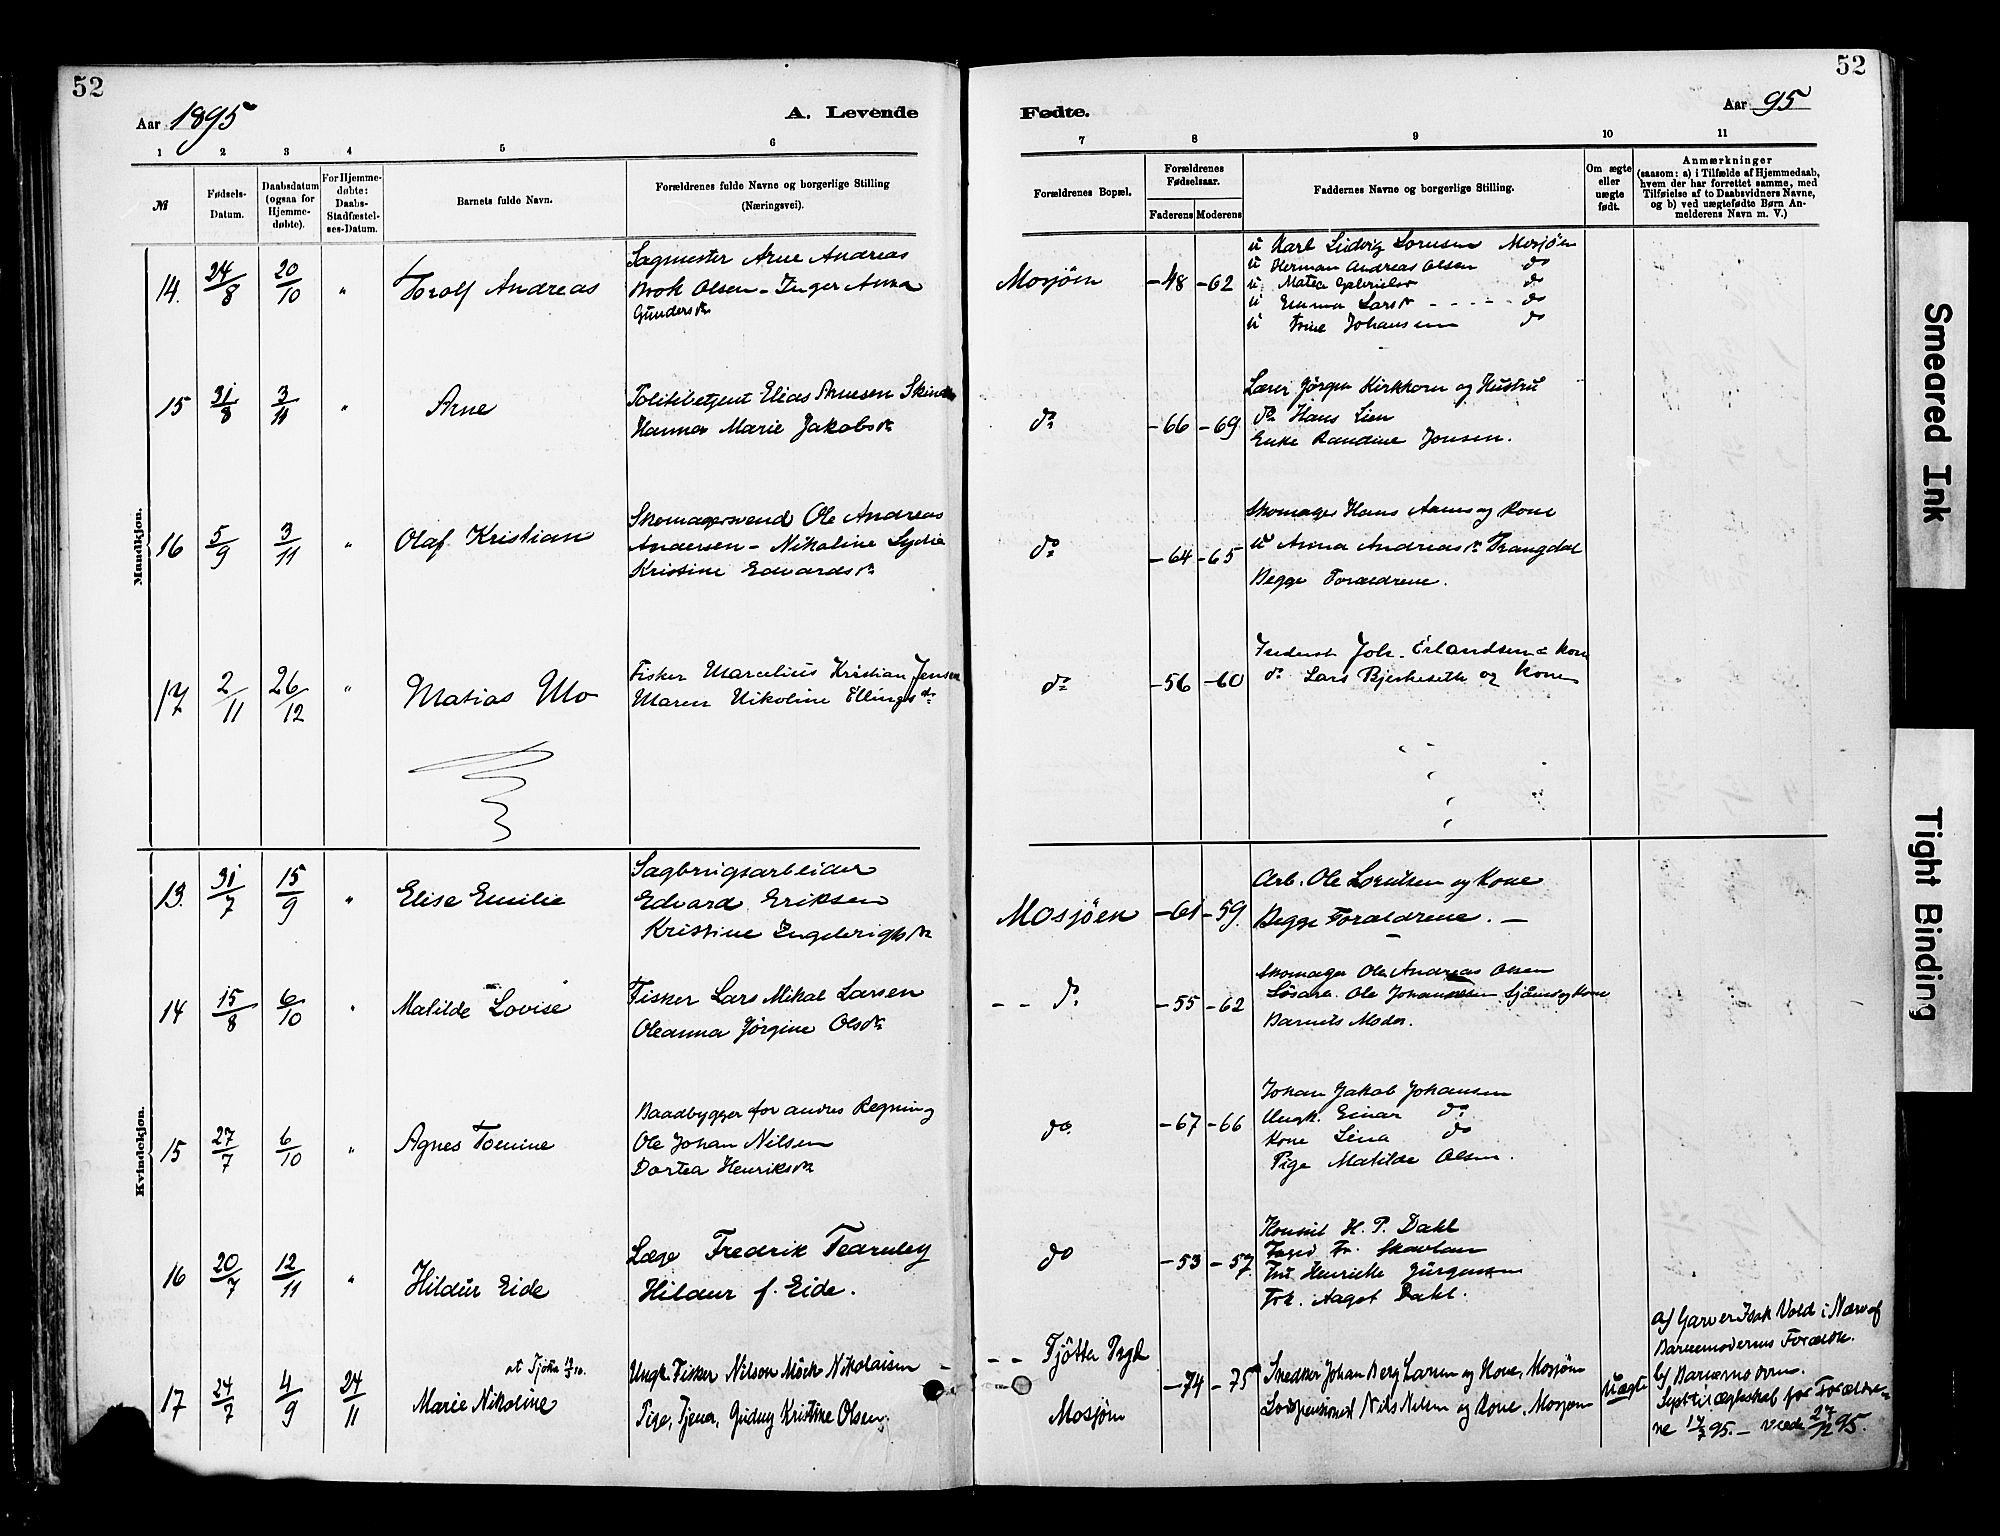 52
52
Aar 1895
A. Levende
Fødte.
Aar 95
1 2 3 4 5 6 7 8 9 10 11
№
Fødsels-Datum.
Daabsdatum (ogsaa for Hjemmedøbte).
For Hjemmedøbte: Daabs-Stadfæstelses-Datum.
Barnets fulde Navn.
Forældrenes fulde Navne og borgerlige Stilling
(Næringsvei).
Forældrenes Bopæl.
Forældrenes Fødselsaar.
Faderens Moderens
Faddernes Navne og borgerlige Stilling.
Om ægte eller uægte født.
Anmærkninger
(saasom: a) i Tilfælde af Hjemmedaab,
hvem der har forrettet samme, med
Tilføielse af to Daabsvidners Navne,
og b) ved uægtefødte Børn Anmelderens
Navn m. V.)
Mandkjøn.
14. 24/8 20/10 " Hrolf Andreas
Sagmester Arne Andreas
Brok Olsen - Inger Anna
Gundersdr
Mosjøen -48 -62
u Karl Ludvig Lorntsen Mosjøen
u Herman Andreas Olsen do
u Matea Gabrielsdr do
u Emma Larsdr - - - - do
u Trine Johansen do
15 31/8 3/11 " Arne
Politibetjent Elias Arnesen
Hanna Marie Jakobsdr
do -66 -69
Lærer Jørgen Kirkhorn og Hustru
do Hans Lien
Enke Randine Jonsen.
16 5/9 3/11 " Olaf Kristian
Skomagersvend Ole Andreas
Andersen - Nikoline Lydia
Kristine Edvardsdr
do -64 -65
Skomager Hans Arnes og Kone
u Anna Andreasdr Trangdal
Begge Forældrene.
17 2/11 26/12 " Matias Mo
Fisker Marcelius Kristian Jensen
Maren Nikoline Ellingsdr
do -56 -60
Joh. Erlandsen & Kone
do Lars Bjerkeseth og Kone
Kvindekjøn.
13. 31/7 15/9 " Elise Emilie
Sagbrugsarbeider
Edvard Eriksen
Kristine Ingebrigtsdr
Mosjøen -61 -59.
Arb. Ole Lorntsen og Kone
Begge Forældrene. -
14 15/8 6/10 " Matilde Lovise
Fisker Lars Mikal Larsen
Oleanna Jørgine Olsdr
- - do -55 -62
Skomager Ole Andreas Olsen
Løsarb. Ole Johannesen og Kone
Barnets Moder.
15 27/7 6/10 " Agnes Tomine
Baadbygger for andres Regning
Ole Johan Nilsen
Dortea Henriksdr
do. -67 -66
Johan Jakob Johansen
Ungk. Einar do
Kone Lina do
Pige Matilde Olsen.
16 20/7 12/11 " Hildur Eide
Læge Fredrik Tearnley
Hildur f. Eide.
do -53 -57
Konsul H. P. Dahl
Foged Fr. Skavlan
Fru Henriette Jürgensen
Frk. Aagot Dahl.
17 24/7 4/9 24/11 Marie Nikoline
Ungk. Fisker Nilson Møch Nikolaisen
Pige, Tjener, Gudny Kristine Olsen
- - Tjøtta Prgld
Mosjøen
-74 -75
Snedker Johan Berg Larsen og Kone, Mosjøen
Nils Nilsen og Kone, Mosjøen
Uægte
a) Garver Isak Vold i Nærv af
Barnemoderens Forældre.
b) Barnemoderen.
Lyst til Ægteskab for Forældre-
ne 95. - viede 95.
Smeared Ink
Tight Binding